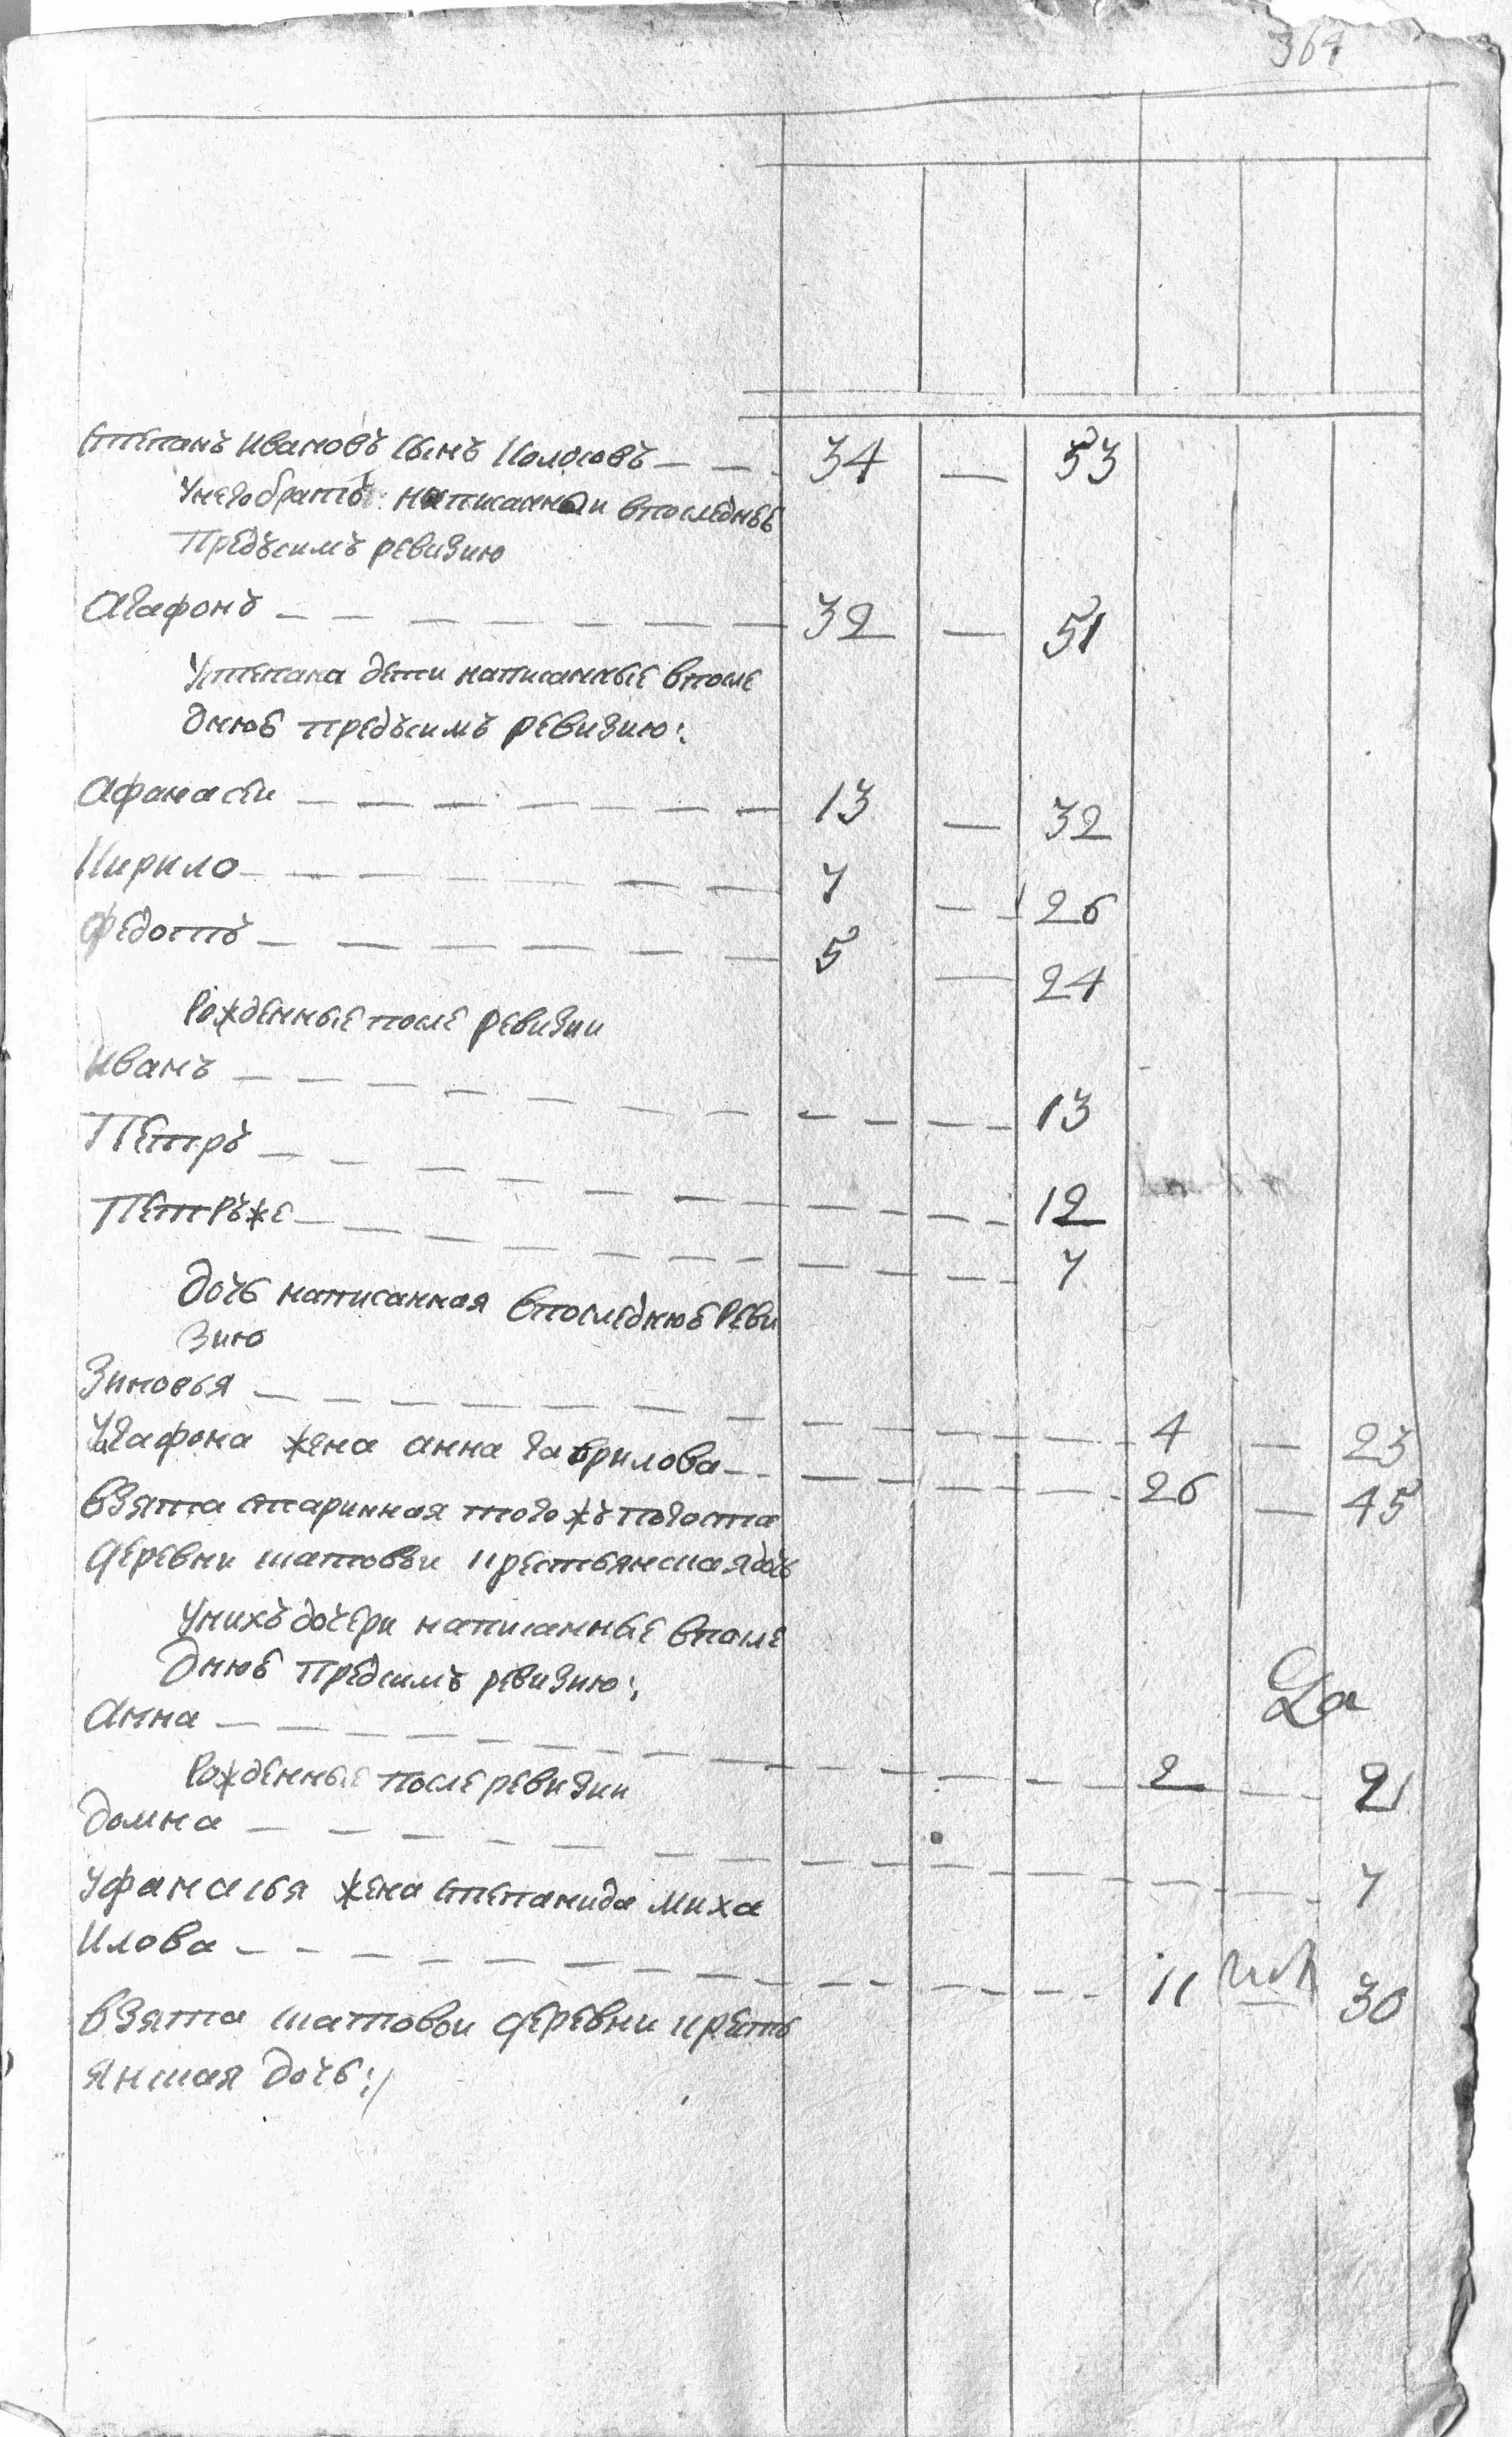 364
Степанъ Ивановъ сынъ Колосовъ — — 34 — 53
Унего братъ написанной впоследнеѣ
Предъсимъ ревизию
Агафонъ — — — — — — — 32 — 51
Устепана дети написанные впосле
днюѣ предъсимъ ревизию:
Афанасеи — — — — — — — 13 — 32
Кирило — — — — — — — 7 — — 26
Федотъ — — — — — — 5 — 24
Рожденные после ревизии
Иванъ — — — — — — — — — — 13
Петръ — — — — — — — — — — 12
Петръже — — — — — — — — — — 7
Дочь написанная впоследнюѣ реви
зию
Зиновья — — — — — — — — — — — 4 — 23
Уагафона жена анна гаврилова — — — — — — — 26 — 45
Взята старинная того жъ погоста
деревни шатовои крестьянская дочь
Унихъ дочери написанные впосле
днюѣ предсимъ ревизию:
Анна — — — — — — — — — — — 2 — — 21
Рожденные после ревизии
Домна — — — — — — — — — — — — — 7
Уфанасья жена степанида миха
илова — — — — — — — — — — — 11 30
Взята шатовои деревни кресть
янская дочь:/